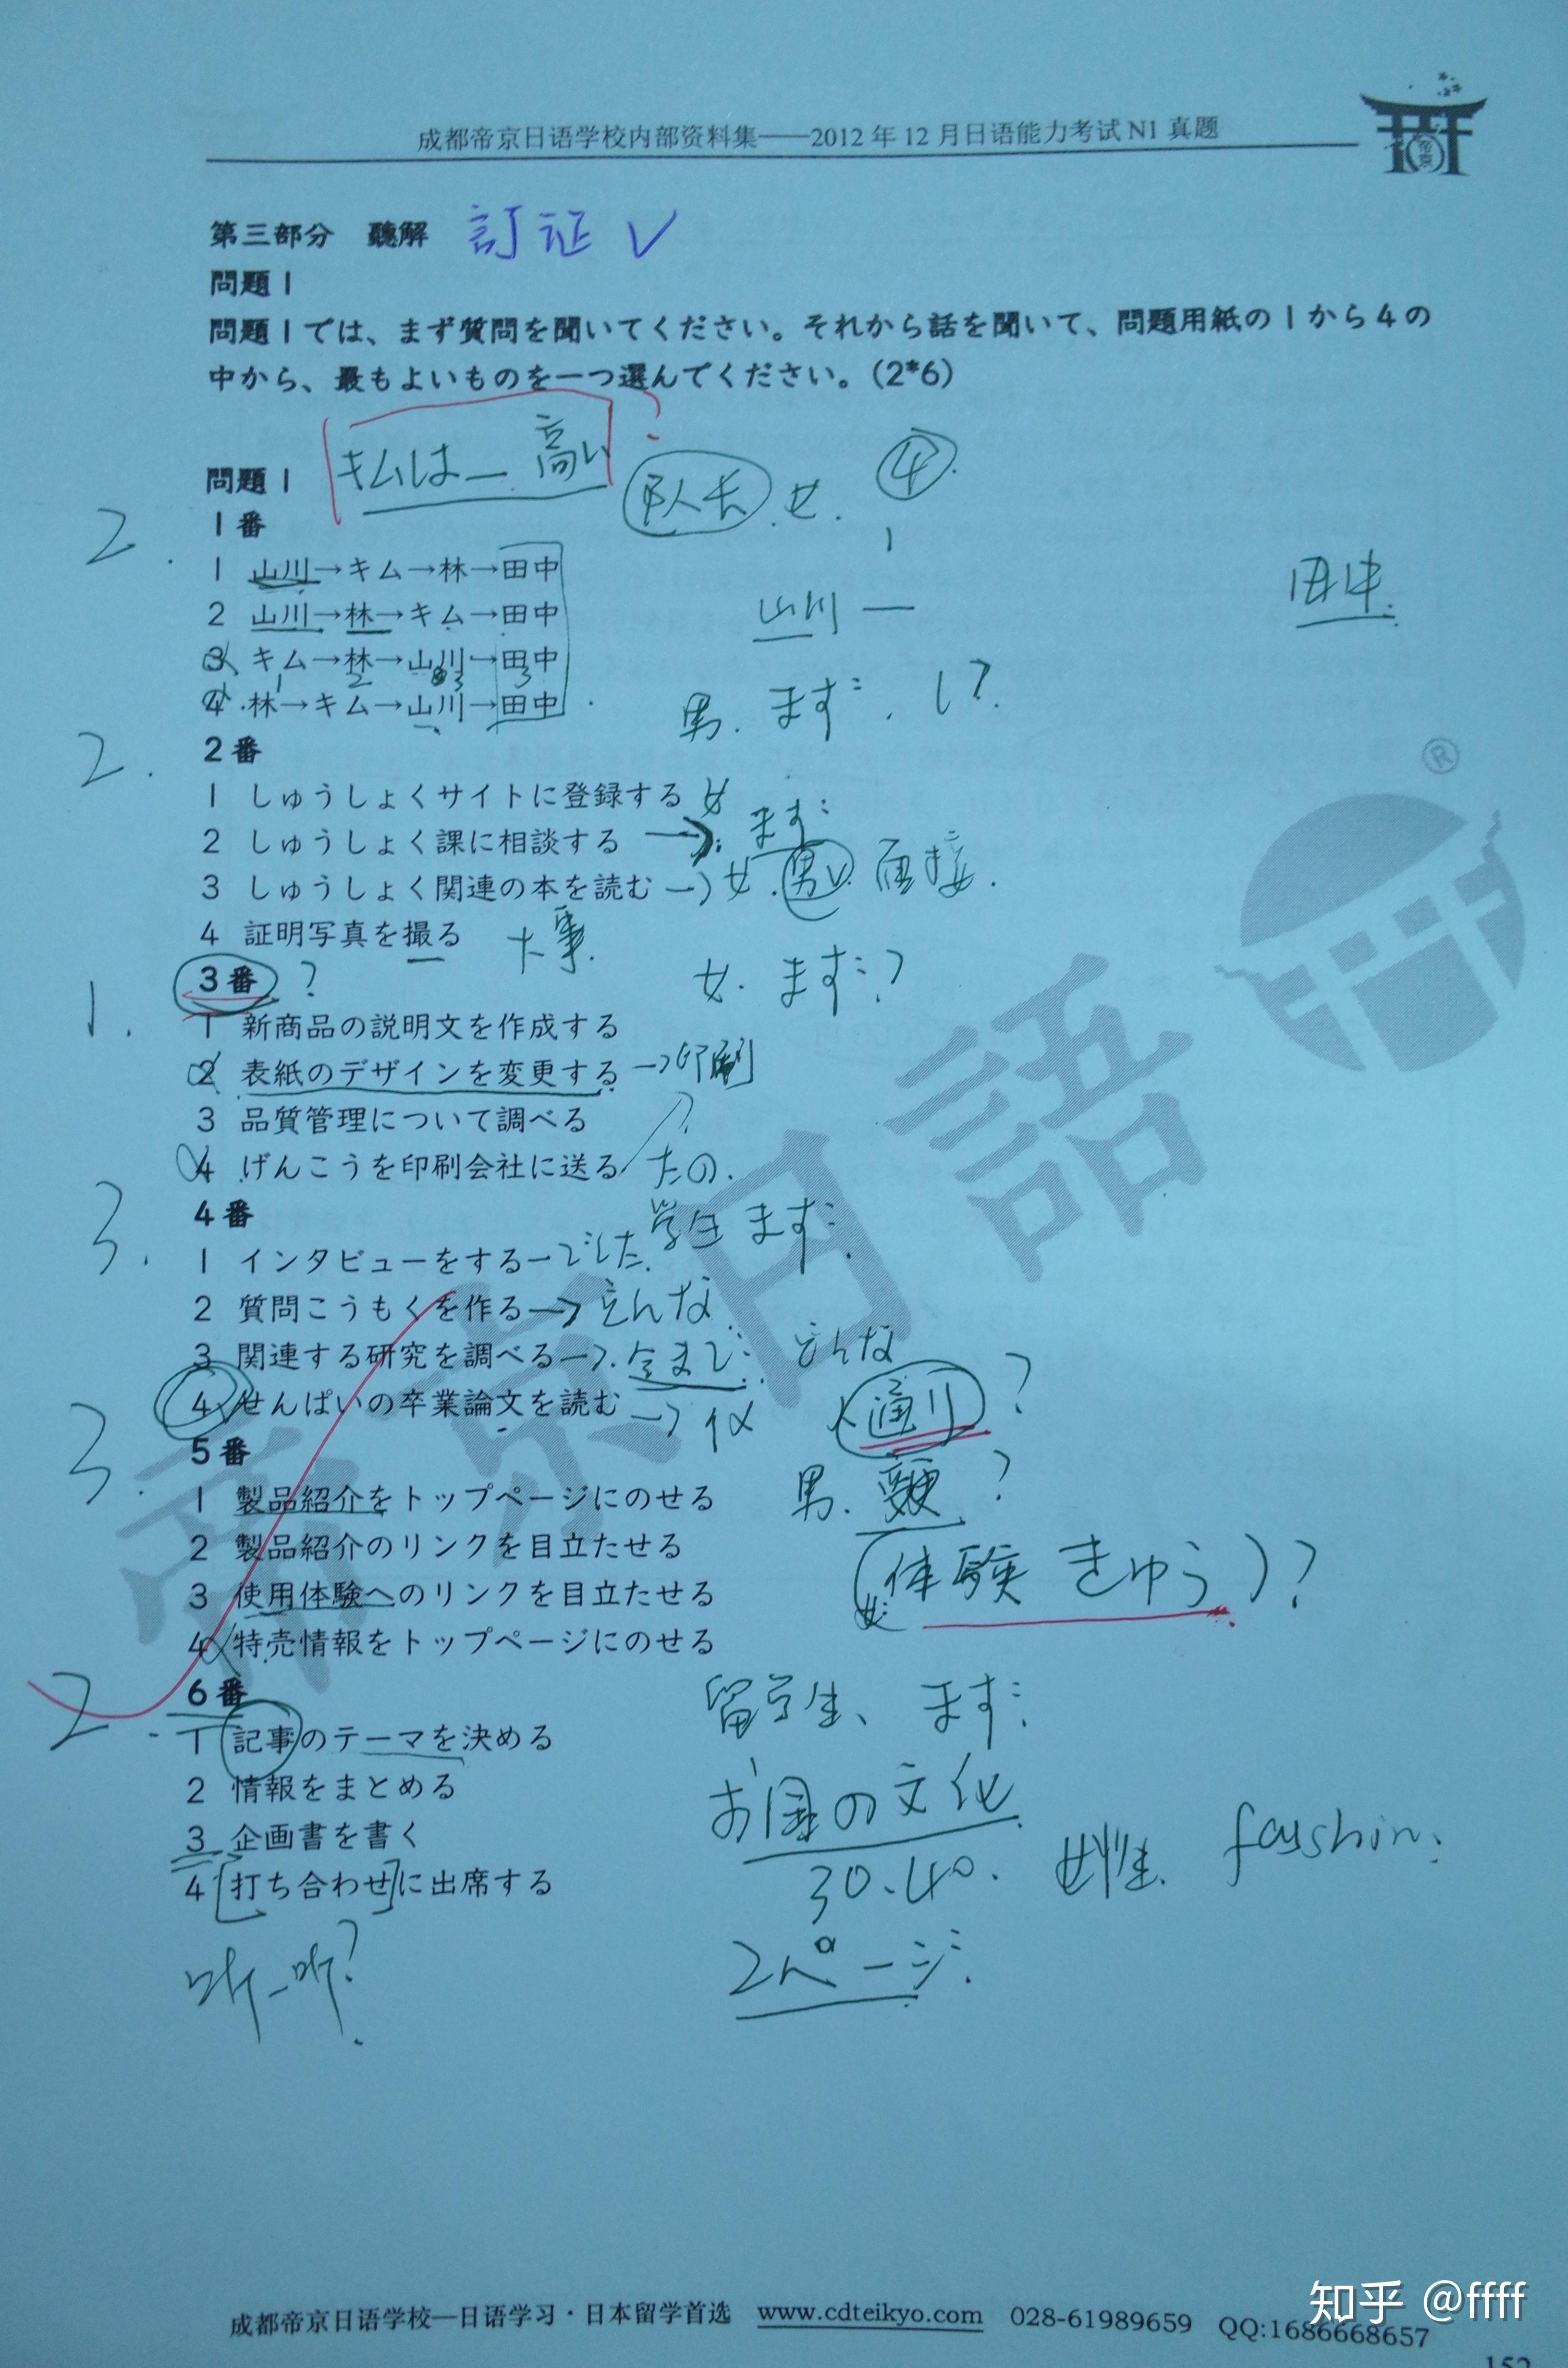 成都帝京日语学校内部资料集——2012年12月日语能力考试N1真题
帝京
第三部分 聽解 訂证 √
問題1
問題1では、まず質問を聞いてください。それから話を聞いて、問題用紙の1から4の
中から、最もよいものを一つ選んでください。（2*6）
キムは— 高い ?
問題1 队长 女. ④
2. 1番
1 山川→キム→林→田中
田中
2 山川→林→キム→田中 山川 —
3 キム→林→山川→田中
4 林→キム→山川→田中
男. まず: . し?
2. 2番
1 しゅうしょくサイトに登録する 女
2 しゅうしょく課に相談する →. ます:
3 しゅうしょく関連の本を読む →女. 男 面接.
4 証明写真を撮る 大事.
女. まず:?
1. 3番 ?
1 新商品の説明文を作成する
2 表紙のデザインを変更する →印刷
3 品質管理について調べる ?
4 げんこうを印刷会社に送る たの.
3. 4番 学生 ます:
1 インタビューをする—でした.
2 質問こうもくを作る→どんな
3 関連する研究を調べる→今まで: どんな
4 せんぱいの卒業論文を読む → 通り ?
3. 5番
1 製品紹介をトップページにのせる 男. ?
2 製品紹介のリンクを目立たせる
3 使用体験へのリンクを目立たせる 女: (体験 きゅう)?
4 特売情報をトップページにのせる
2. 6番
留学生、 ます:
1 記事のテーマを決める
2 情報をまとめる お国の文化
3 企画書を書く
30.40. 女性. fayshin.
4 打ち合わせに出席する
听一听?
2ページ.
帝京日語
®
知乎 @ffff
成都帝京日语学校—日语学习·日本留学首选 www.cdteikyo.com 028-61989659 QQ:1686668657
152